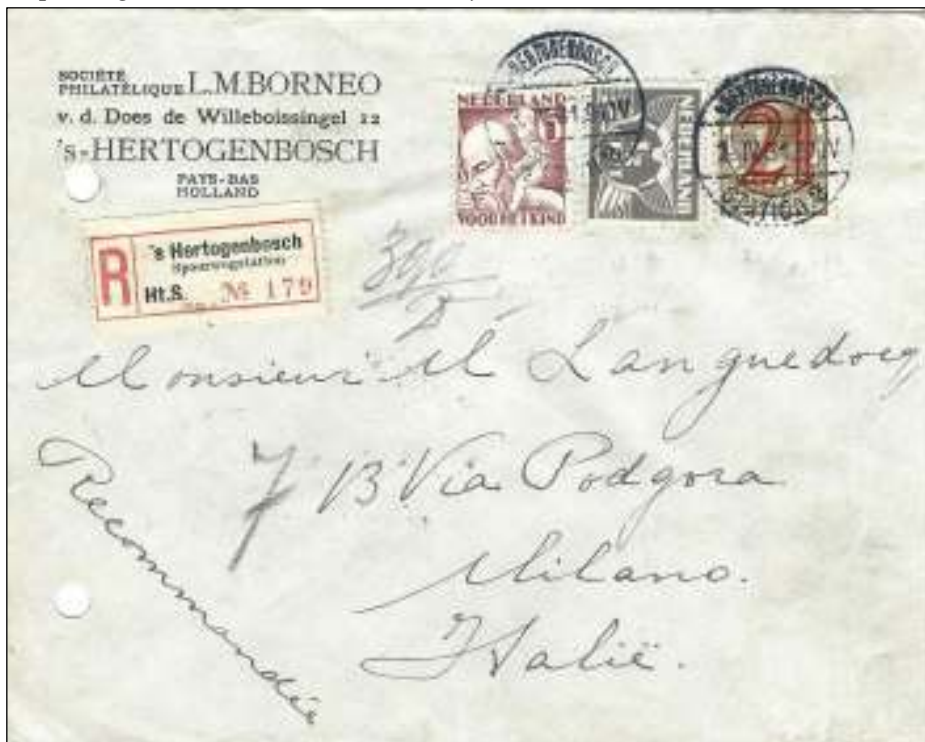 SOCIÉTÉ
PHILATÉLIQUE L.M.BORNEO
v. d. Does de Willeboissingel 12
's-HERTOGENBOSCH
PAYS-BAS
HOLLAND
NEDERLAND
VOOR HET KIND
21
R
's Hertogenbosch
Spoorwegstation
Ht.S. № 179
Monsieur M Languedocq
13 Via Podgora
Milano.
Italië.
Recommandée